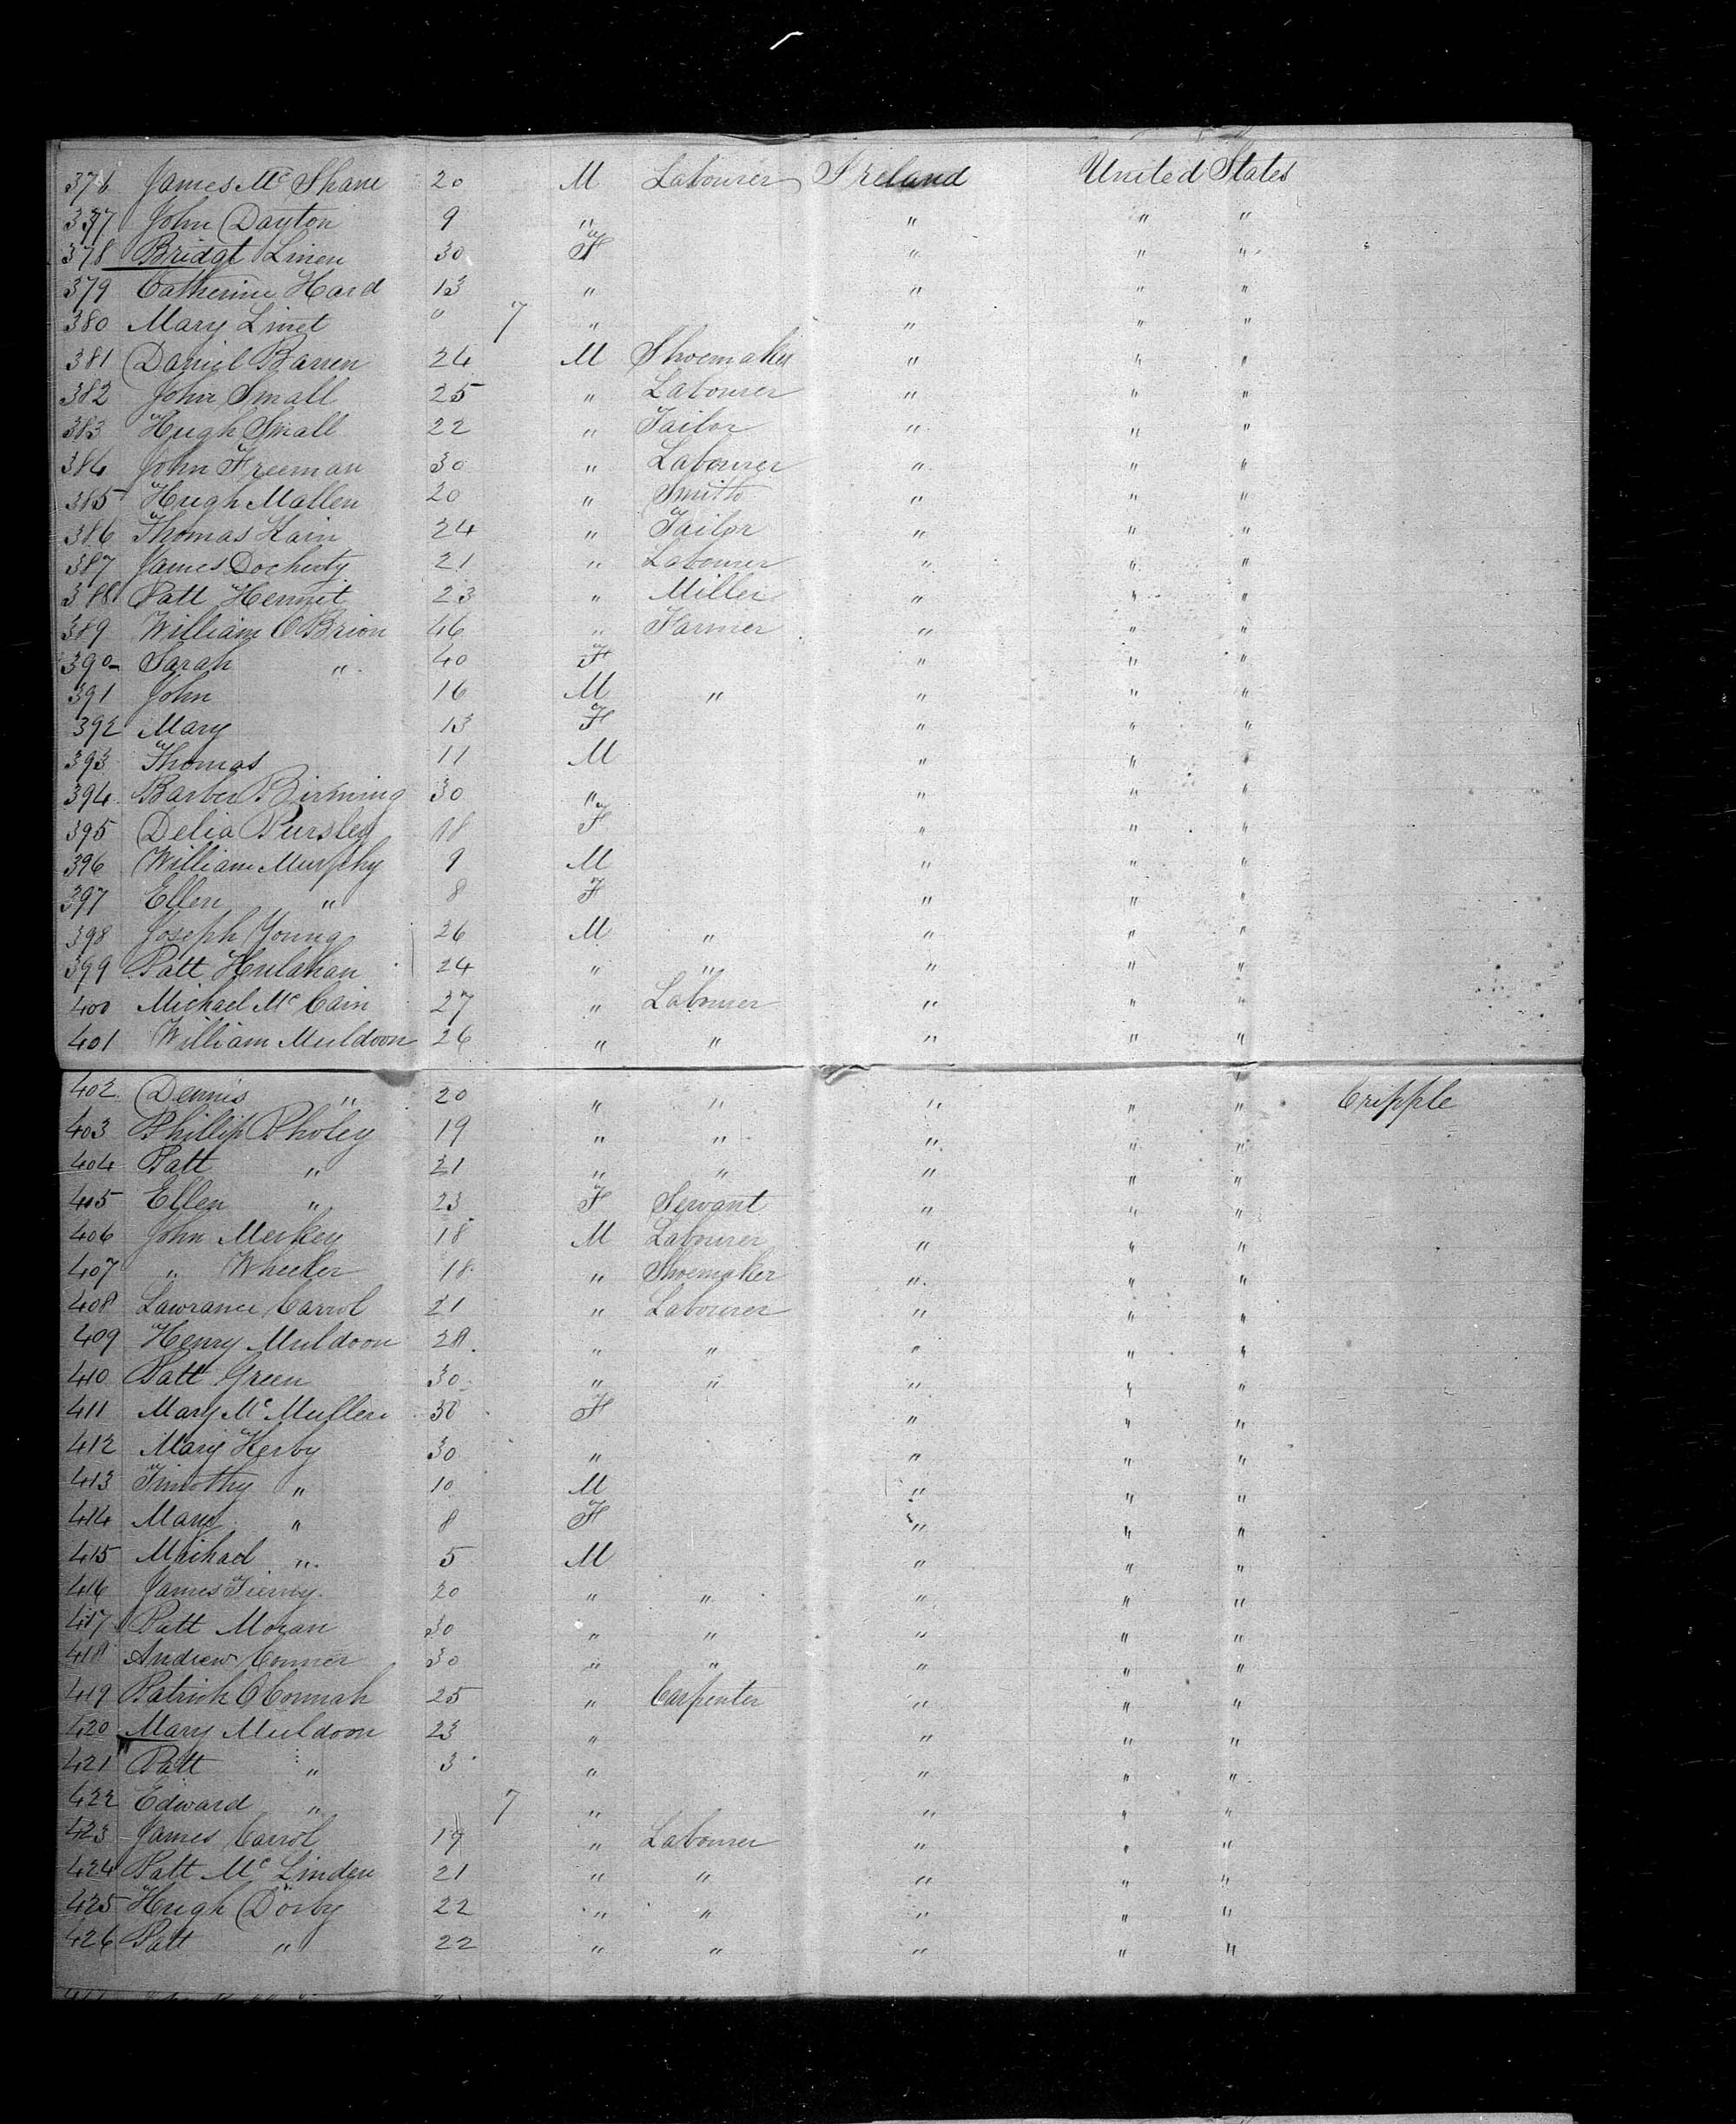 376 James Mc Shane 20 M Labourer Ireland United States
377 John Dayton 9 " " " "
378 Bridgt Linen 30 F " " "
379 Catherine Hard 13 " " " "
380 Mary Linet " 7 " " " "
381 Daniel Barren 24 M Shoemaker " " "
382 John Small 25 " Labourer " " "
383 Hugh Small 22 " Tailor " " "
384 John Freeman 30 " Labourer " " "
385 Hugh Mallen 20 " Smith " " "
386 Thomas Kain 24 " Tailor " " "
387 James Docherty 21 " Labourer " " "
388 Patt Hennit 23 " Miller " " "
389 William O Brion 46 " Farmer " " "
390 Sarah " 40 F " " "
391 John 16 M " " " "
392 Mary 13 F " " "
393 Thomas 11 M " " "
394 Barber Birmning 30 " " " "
395 Delia Pursley 18 F " " "
396 William Murphy 9 M " " "
397 Ellen " 8 F " " "
398 Joseph Young 26 M " " " "
399 Patt Hulahan 24 " " " " "
400 Michael Mc Cain 27 " Labourer " " "
401 William Muldoon 26 " " " " "
402 Dennis " 20 " " " " " Cripple
403 Phillip Pholey 19 " " " " "
404 Patt " 21 " " " " "
405 Ellen " 23 F Servant " " "
406 John Merkey 18 M Labourer " " "
407 " Wheeler 18 " Shoemaker " " "
408 Lawrance Carrol 21 " Labourer " " "
409 Henry Muldoon 28 " " " " "
410 Patt Green 30 " " " " "
411 Mary Mc Mullen 30 F " " "
412 Mary Kerby 30 " " " "
413 Timothy " 10 M " " "
414 Mary " 8 F " " "
415 Maihael " 5 M " " "
416 James Tierny 20 " " " " "
417 Patt Moran 30 " " " " "
418 Andrew Conner 30 " " " " "
419 Patrick O Connah 25 " Carpenter " " "
420 Mary Muldoon 23 " " " "
421 Patt " 3 " " " "
422 Edward " 7 " " " "
423 James Carrol 19 " Labourer " " "
424 Patt Mc Linden 21 " " " " "
425 Hugh Dorby 22 " " " " "
426 Patt " 22 " " " " "